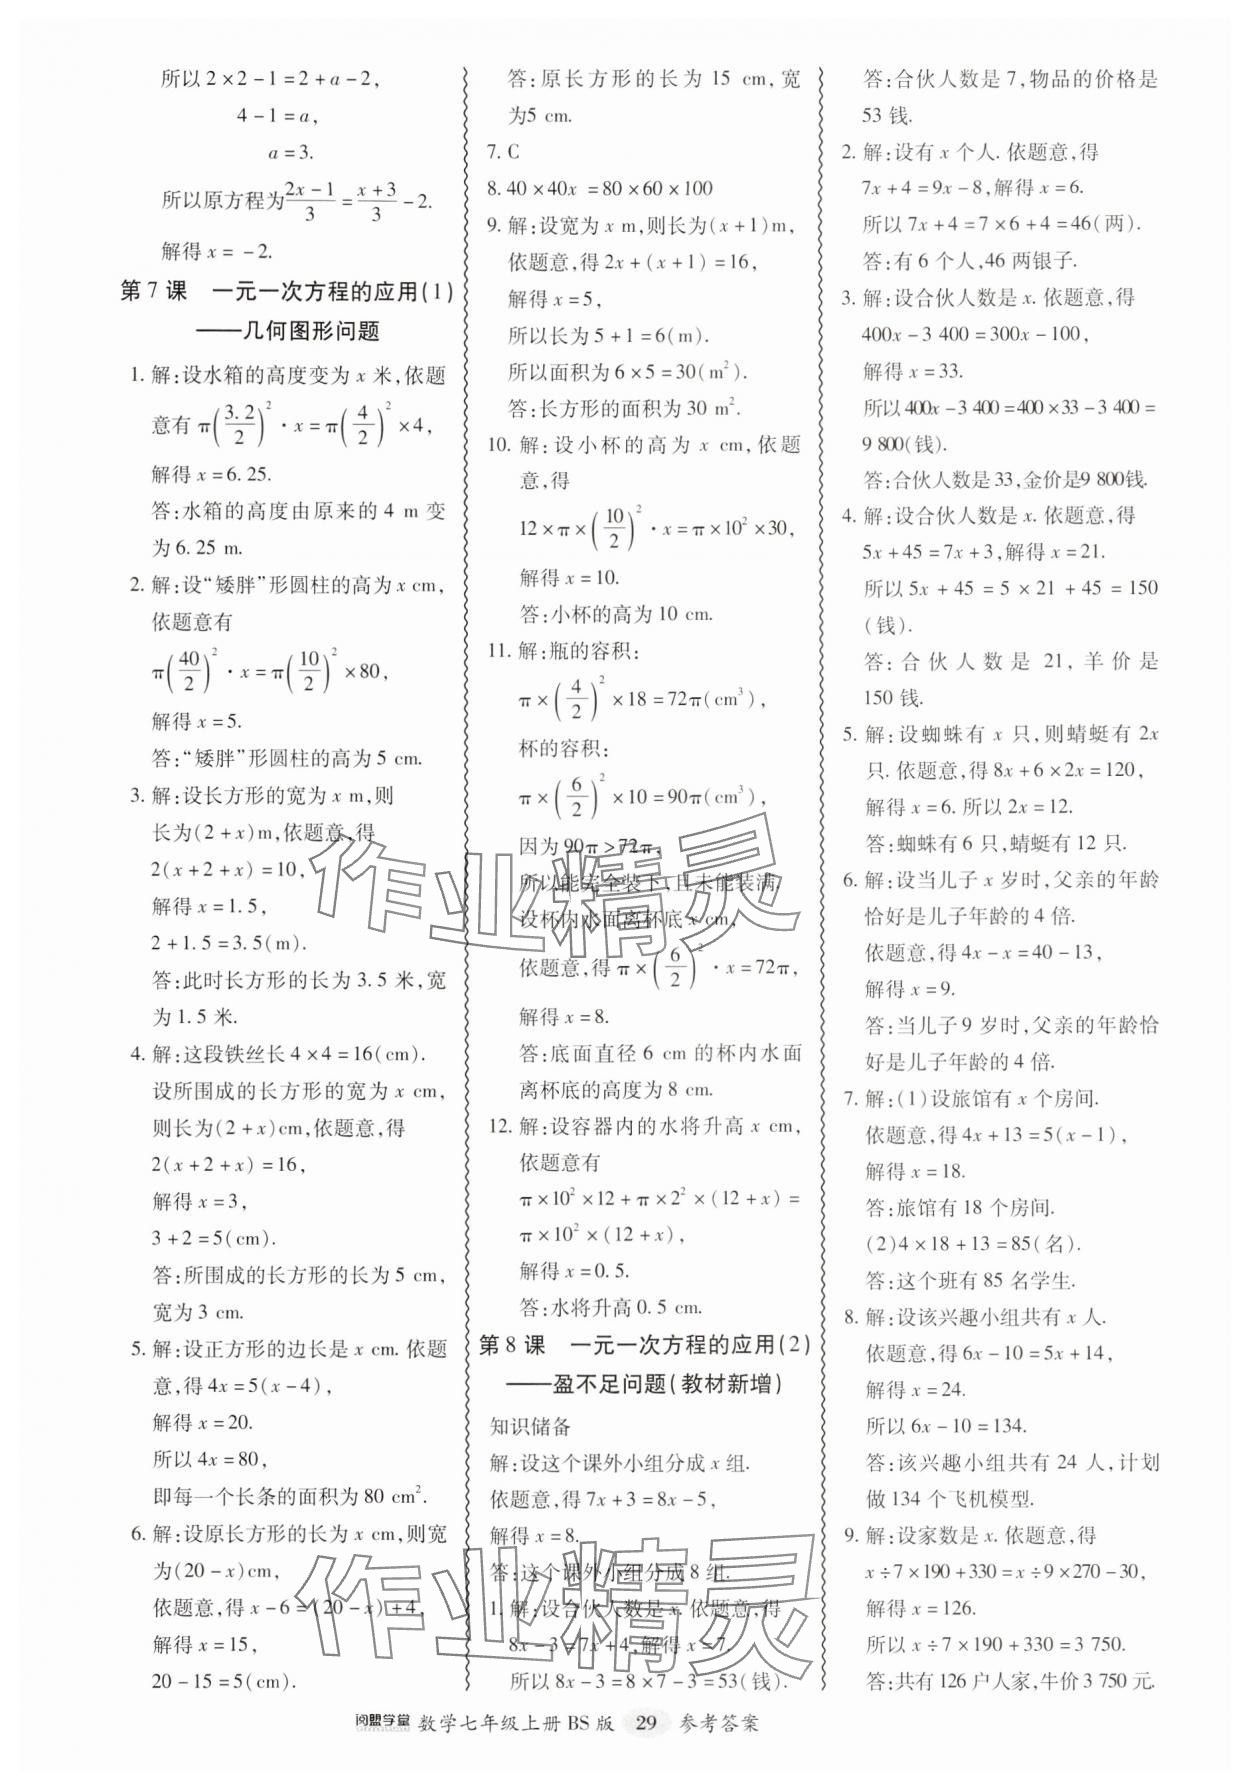 所以2×2-1=2+a-2,
4-1=a,
a=3.
所以原方程为\frac{2x-1}{3}=\frac{x+3}{3}-2.
解得x=-2.
第7课 一元一次方程的应用(1)
——几何图形问题
1. 解:设水箱的高度变为x米,依题
意有π(\frac{3.2}{2})²·x=π(\frac{4}{2})²×4,
解得x=6.25.
答:水箱的高度由原来的4 m变
为6.25 m.
2. 解:设“矮胖”形圆柱的高为x cm,
依题意有
π(\frac{40}{2})²·x=π(\frac{10}{2})²×80,
解得x=5.
答:“矮胖”形圆柱的高为5 cm.
3. 解:设长方形的宽为x m,则
长为(2+x)m,依题意,得
2(x+2+x)=10,
解得x=1.5,
2+1.5=3.5(m).
答:此时长方形的长为3.5米,宽
为1.5米.
4. 解:这段铁丝长4×4=16(cm).
设所围成的长方形的宽为x cm,
则长为(2+x)cm,依题意,得
2(x+2+x)=16,
解得x=3,
3+2=5(cm).
答:所围成的长方形的长为5 cm,
宽为3 cm.
5. 解:设正方形的边长是x cm. 依题
意,得4x=5(x-4),
解得x=20.
所以4x=80,
即每一个长条的面积为80 cm².
6. 解:设原长方形的长为x cm,则宽
为(20-x)cm,
依题意,得x-6=(20-x)+4,
解得x=15,
20-15=5(cm).
答:原长方形的长为15 cm,宽
为5 cm.
7. C
8. 40×40x=80×60×100
9. 解:设宽为x m,则长为(x+1)m,
依题意,得2x+(x+1)=16,
解得x=5,
所以长为5+1=6(m).
所以面积为6×5=30(m²).
答:长方形的面积为30 m².
10. 解:设小杯的高为x cm,依题
意,得
12×π×(\frac{10}{2})²·x=π×10²×30,
解得x=10.
答:小杯的高为10 cm.
11. 解:瓶的容积:
π×(\frac{4}{2})²×18=72π(cm³),
杯的容积:
π×(\frac{6}{2})²×10=90π(cm³),
因为90π>72π,
所以能完全装下,且未能装满.
设杯内水面离杯底x cm,
依题意,得π×(\frac{6}{2})²·x=72π,
解得x=8.
答:底面直径6 cm的杯内水面
离杯底的高度为8 cm.
12. 解:设容器内的水将升高x cm,
依题意有
π×10²×12+π×2²×(12+x)=
π×10²×(12+x),
解得x=0.5.
答:水将升高0.5 cm.
第8课 一元一次方程的应用(2)
——盈不足问题(教材新增)
知识储备
解:设这个课外小组分成x组.
依题意,得7x+3=8x-5,
解得x=8.
答:这个课外小组分成8组.
1. 解:设合伙人数是x. 依题意,得
8x-3=7x+4,解得x=7.
所以8x-3=8×7-3=53(钱).
答:合伙人数是7,物品的价格是
53钱.
2. 解:设有x个人. 依题意,得
7x+4=9x-8,解得x=6.
所以7x+4=7×6+4=46(两).
答:有6个人,46两银子.
3. 解:设合伙人数是x. 依题意,得
400x-3 400=300x-100,
解得x=33.
所以400x-3 400=400×33-3 400=
9 800(钱).
答:合伙人数是33,金价是9 800钱.
4. 解:设合伙人数是x. 依题意,得
5x+45=7x+3,解得x=21.
所以5x+45=5×21+45=150
(钱).
答:合伙人数是21,羊价是
150钱.
5. 解:设蜘蛛有x只,则蜻蜓有2x
只. 依题意,得8x+6×2x=120,
解得x=6. 所以2x=12.
答:蜘蛛有6只,蜻蜓有12只.
6. 解:设当儿子x岁时,父亲的年龄
恰好是儿子年龄的4倍.
依题意,得4x-x=40-13,
解得x=9.
答:当儿子9岁时,父亲的年龄恰
好是儿子年龄的4倍.
7. 解:(1)设旅馆有x个房间.
依题意,得4x+13=5(x-1),
解得x=18.
答:旅馆有18个房间.
(2)4×18+13=85(名).
答:这个班有85名学生.
8. 解:设该兴趣小组共有x人.
依题意,得6x-10=5x+14,
解得x=24.
所以6x-10=134.
答:该兴趣小组共有24人,计划
做134个飞机模型.
9. 解:设家数是x. 依题意,得
x÷7×190+330=x÷9×270-30,
解得x=126.
所以x÷7×190+330=3 750.
答:共有126户人家,牛价3 750元.
阅盟学堂 数学七年级上册BS版 29 参考答案
作业精灵
作业精灵